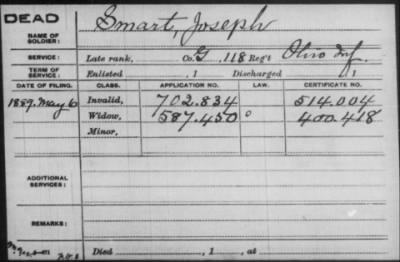 DEAD
NAME OF SOLDIER: Smart, Joseph
SERVICE: Late rank, Co. G, 118 Reg't Ohio Inf.
TERM OF SERVICE: Enlisted , 1 Discharged , 1
DATE OF FILING. CLASS. APPLICATION NO. LAW. CERTIFICATE NO.
1889. May 6 Invalid, 702.834 514.004
Widow, 587.450 400.418
Minor,
ADDITIONAL SERVICES:
REMARKS:
Died , 1 , at